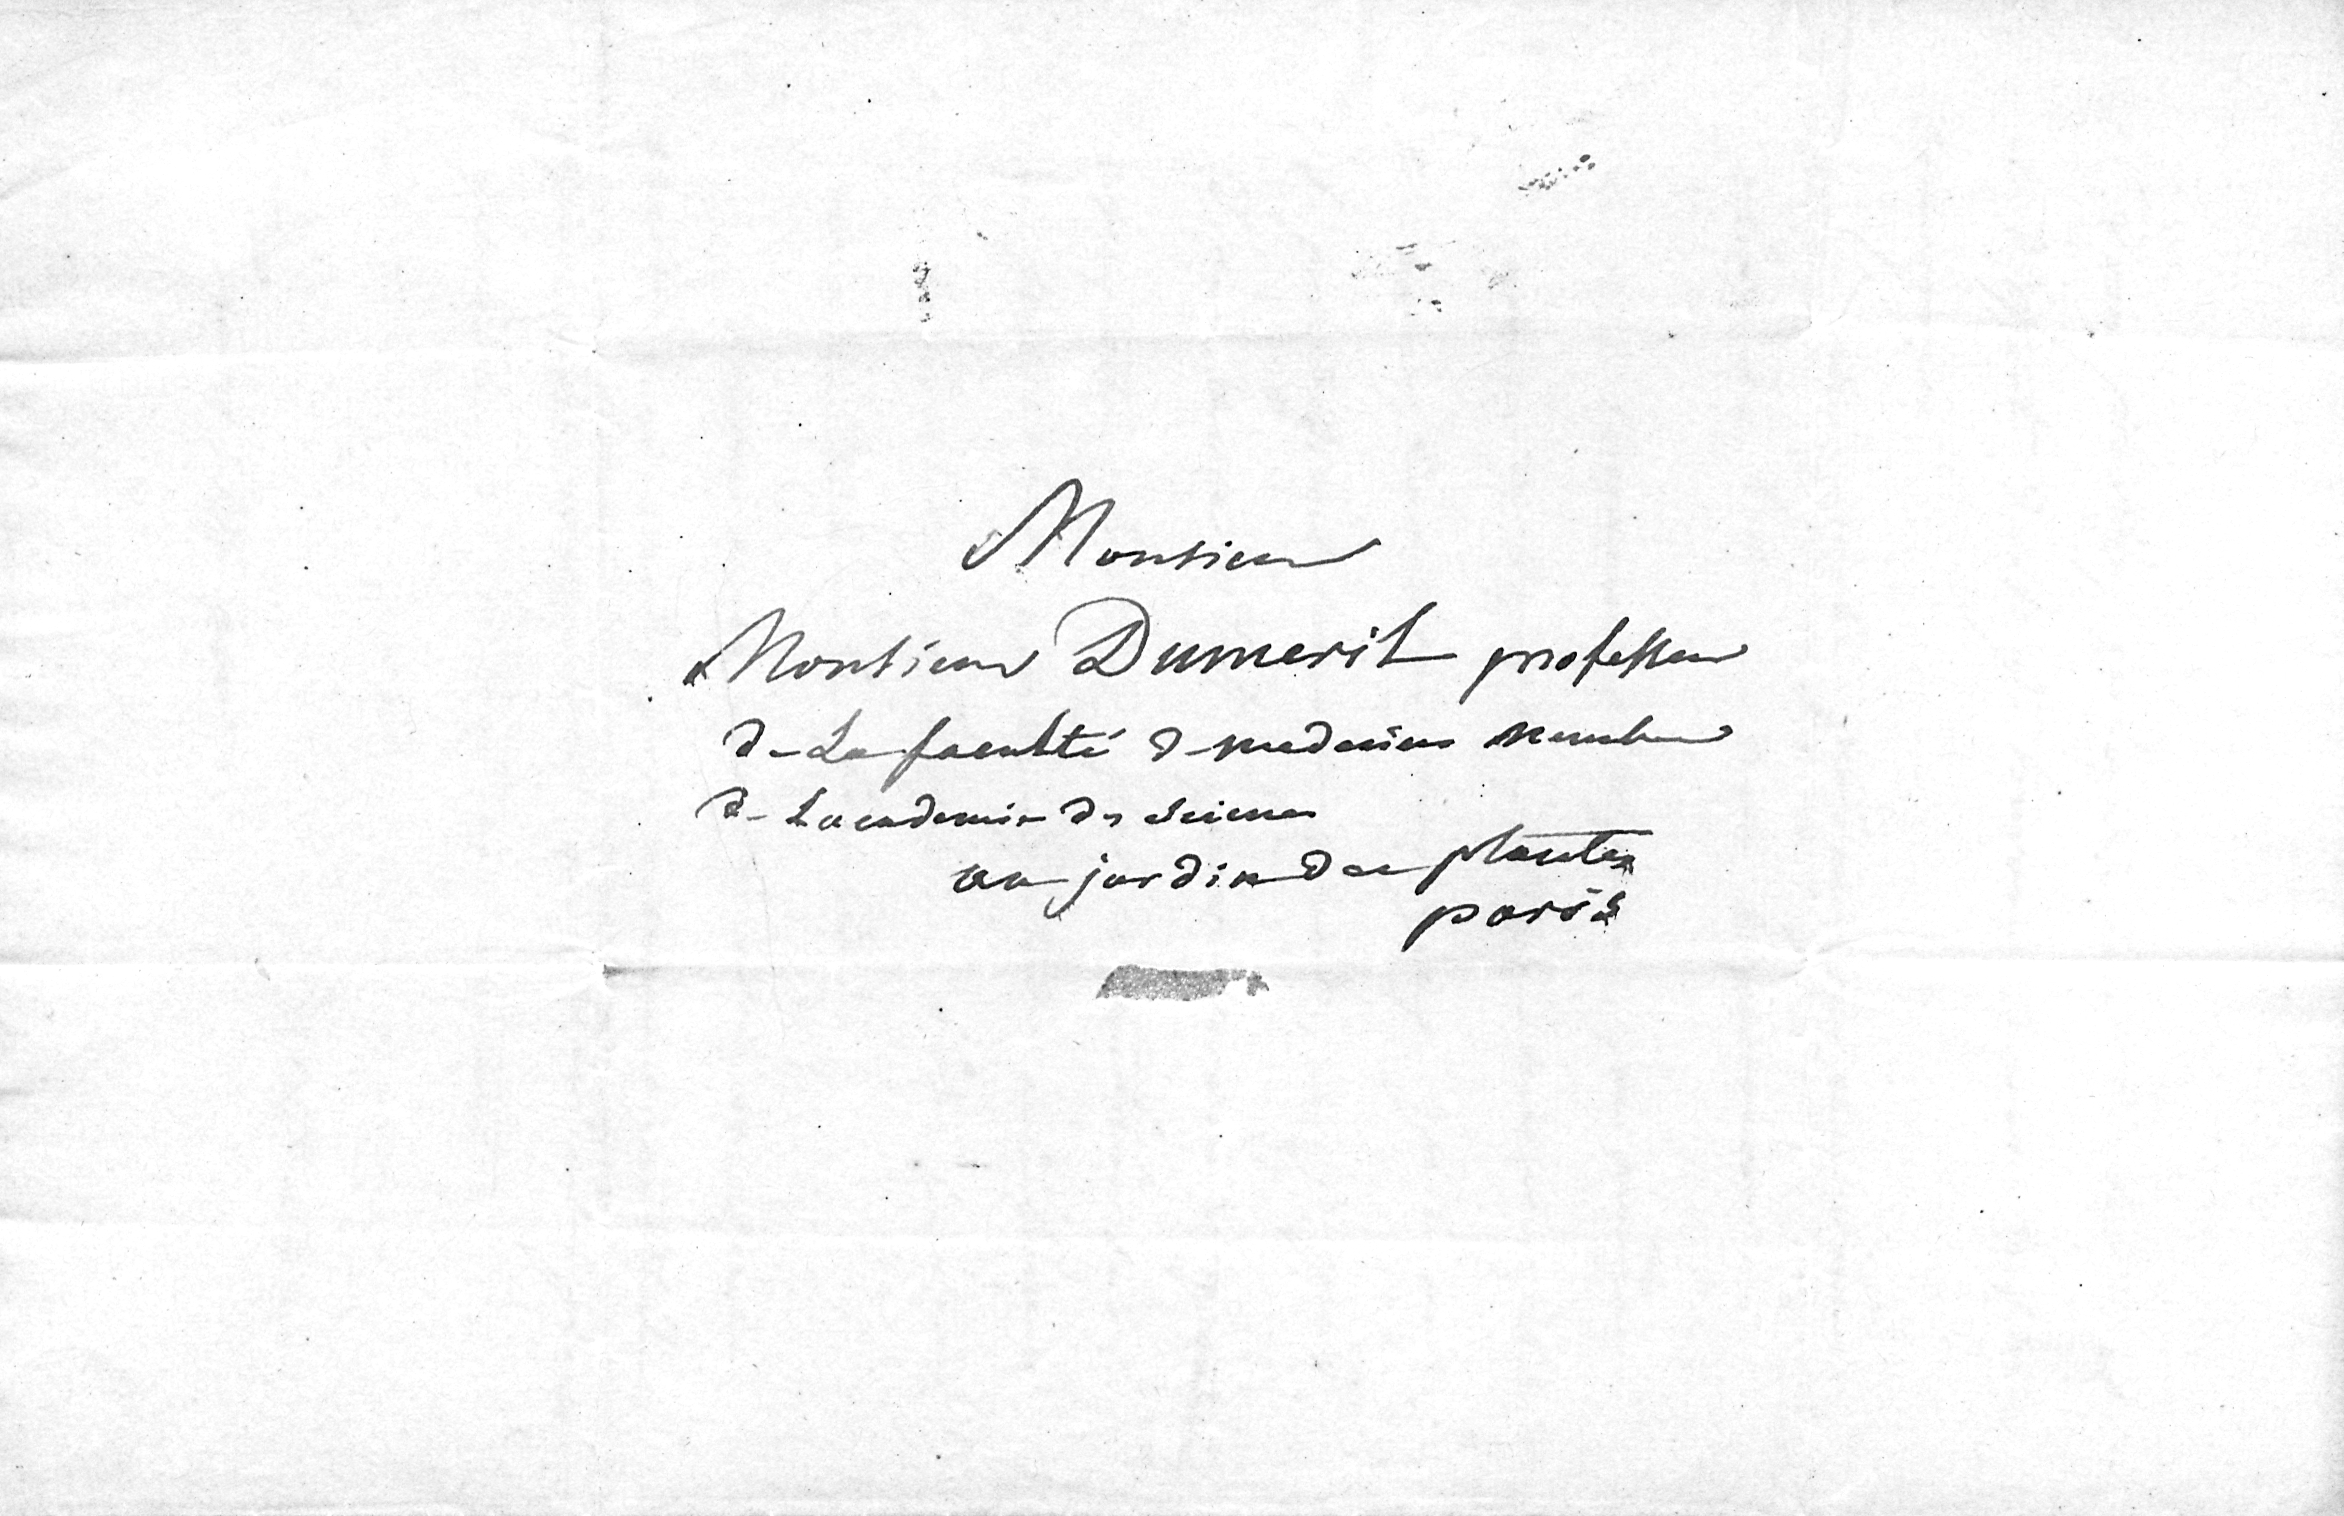 Monsieur
Monsieur Dumeril professeur
de La faculté de medecine membre
de Lacademie des Sciences
au jardin des plantes
paris